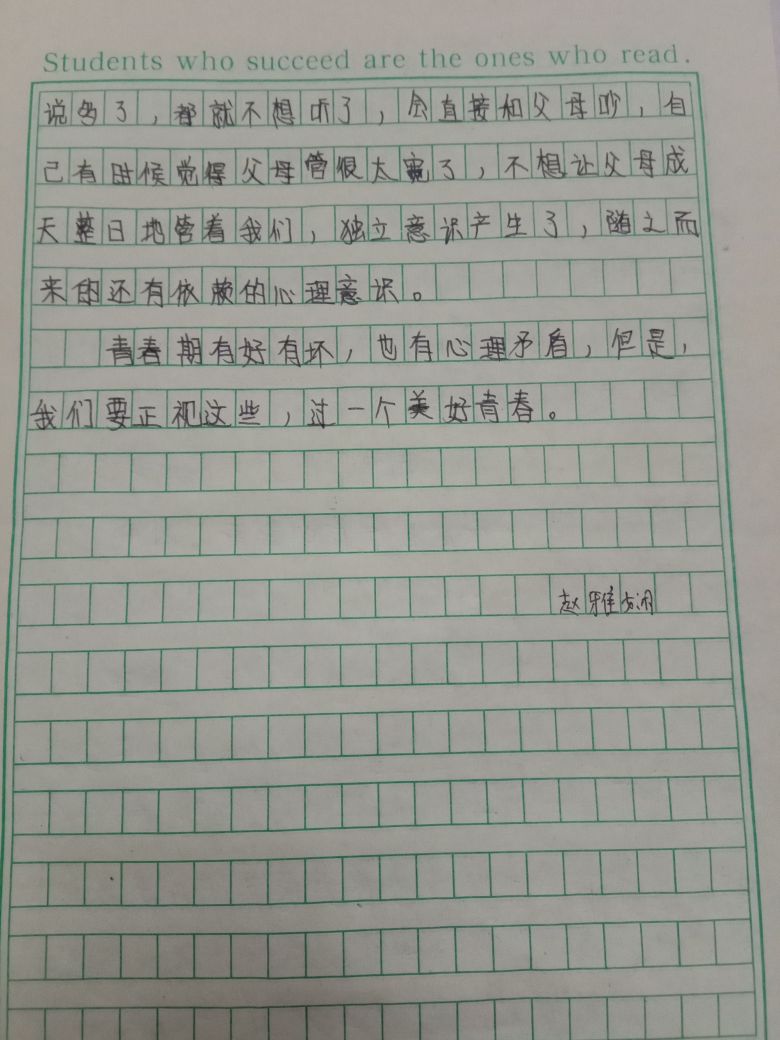 Students who succeed are the ones who read.
说多了，都就不想听了，会直接和父母吵，自
己有时候觉得父母管很太宽了，不想让父母成
天整日地管着我们，独立意识产生了，随之而
来的还有依赖的心理意识。
青春期有好有坏，也有心理矛盾，但是，
我们要正视这些，过一个美好青春。
赵雅